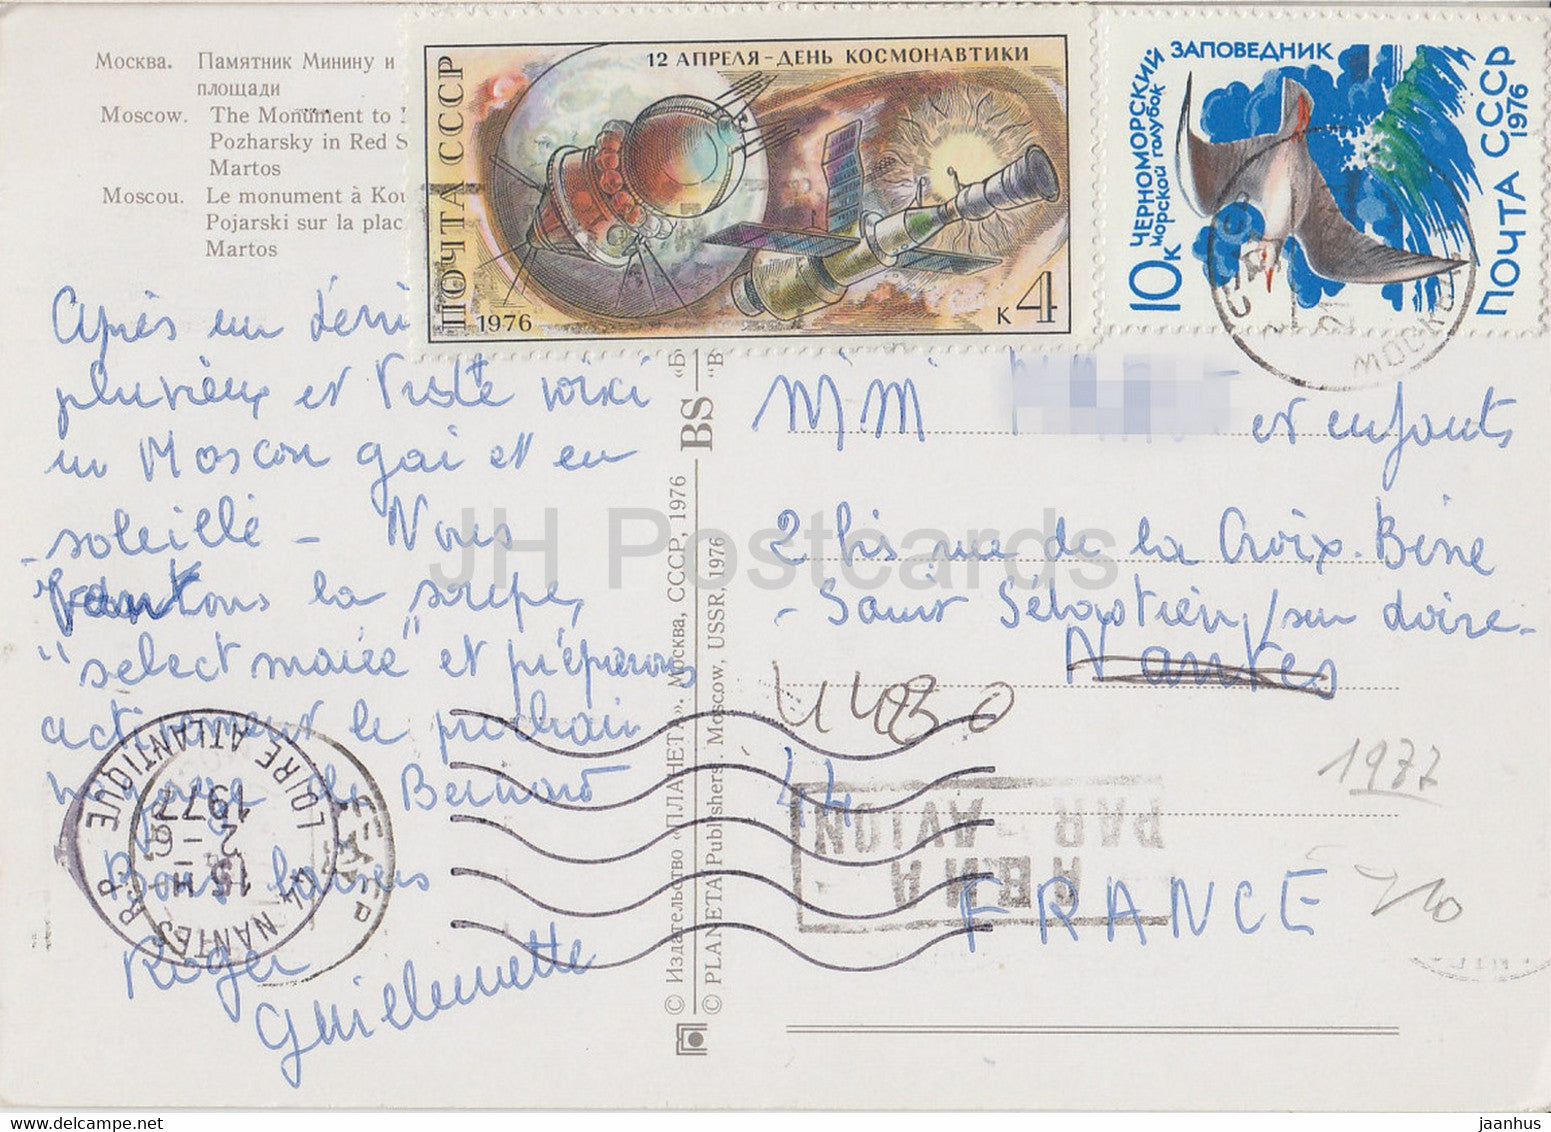 Москва. Памятник Минину и
площади
Moscow. The Monument to
Pozharsky in Red S
Martos
Moscou. Le monument à Kou
Pojarski sur la plac
Martos
12 АПРЕЛЯ - ДЕНЬ КОСМОНАВТИКИ
ПОЧТА СССР
1976
к 4
ЧЕРНОМОРСКИЙ
ЗАПОВЕДНИК
морской голубок
10 к
ПОЧТА СССР
1976
МОСКВА
Après un
pluvieux et triste
un Moscou gai et en
-soleillé - Nous
la
"select" et préparons
activement le prochain
de Bernard
Bons baisers
Roger
Guillemette
44 NANTES R.P.
15 H
2 - 6
1977
LOIRE ATLANTIQUE
© Издательство «ПЛАНЕТА». Москва, СССР, 1976
© PLANETA Publishers. Moscow, USSR, 1976
BS
"В
"Б
MM et enfants
2 bis rue de la Croix.
- Saint Sébastien/sur Loire-
Nantes
44230
44
1977
АВИА
PAR AVION
FRANCE
JH Postcards
www.delcampe.net
jaanhus